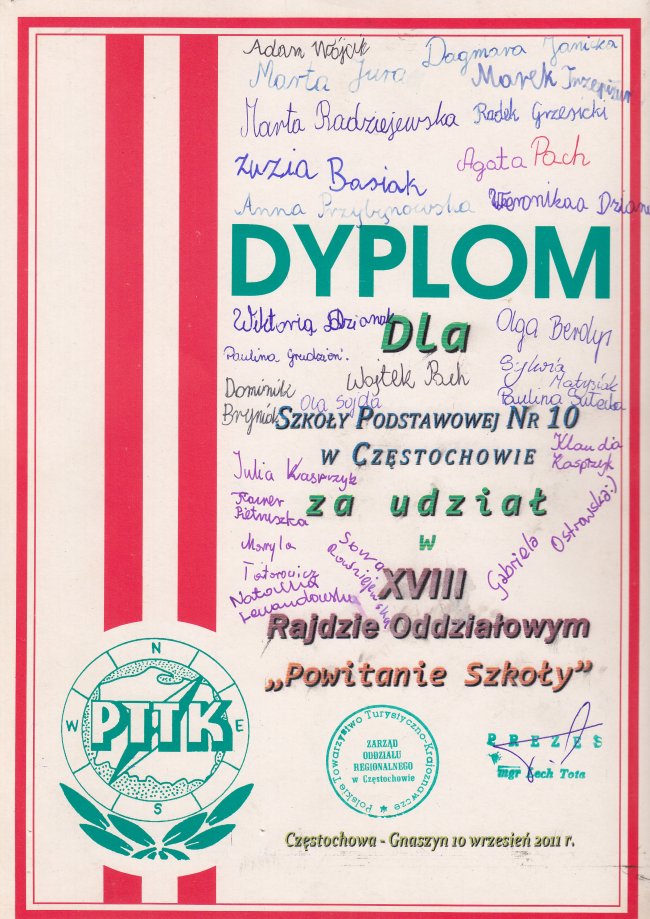 Adam Wójcik
Dagmara Janicka
Marta Jura
Marek
Marta Radziejewska
Radek Grzesicki
Zuzia Basiak
Agata Pach
Anna Przybynowska
Weronikaa
DYPLOM
Wiktoria Dzianak
Dla
Olga
Paulina Grudzień.
Wojtek Pach
Sylwia
Matysiak
Dominik
Ola Sujda
Paulina
SZKOŁY PODSTAWOWEJ NR 10
Klaudia
Kasprzyk
W CZĘSTOCHOWIE
Julia Kasprzyk
za udział
Pietruszka
w
Gabriela Ostrawska:)
XVIII
Natalia
Lewandowska
Rajdzie Oddziałowym
„Powitanie Szkoły”
N
W
E
S
PTTK
Polskie Towarzystwo Turystyczno-Krajoznawcze
ZARZĄD
ODDZIAŁU
REGIONALNEGO
w Częstochowie
PREZES
mgr Lech Tota
Częstochowa - Gnaszyn 10 wrzesień 2011 r.